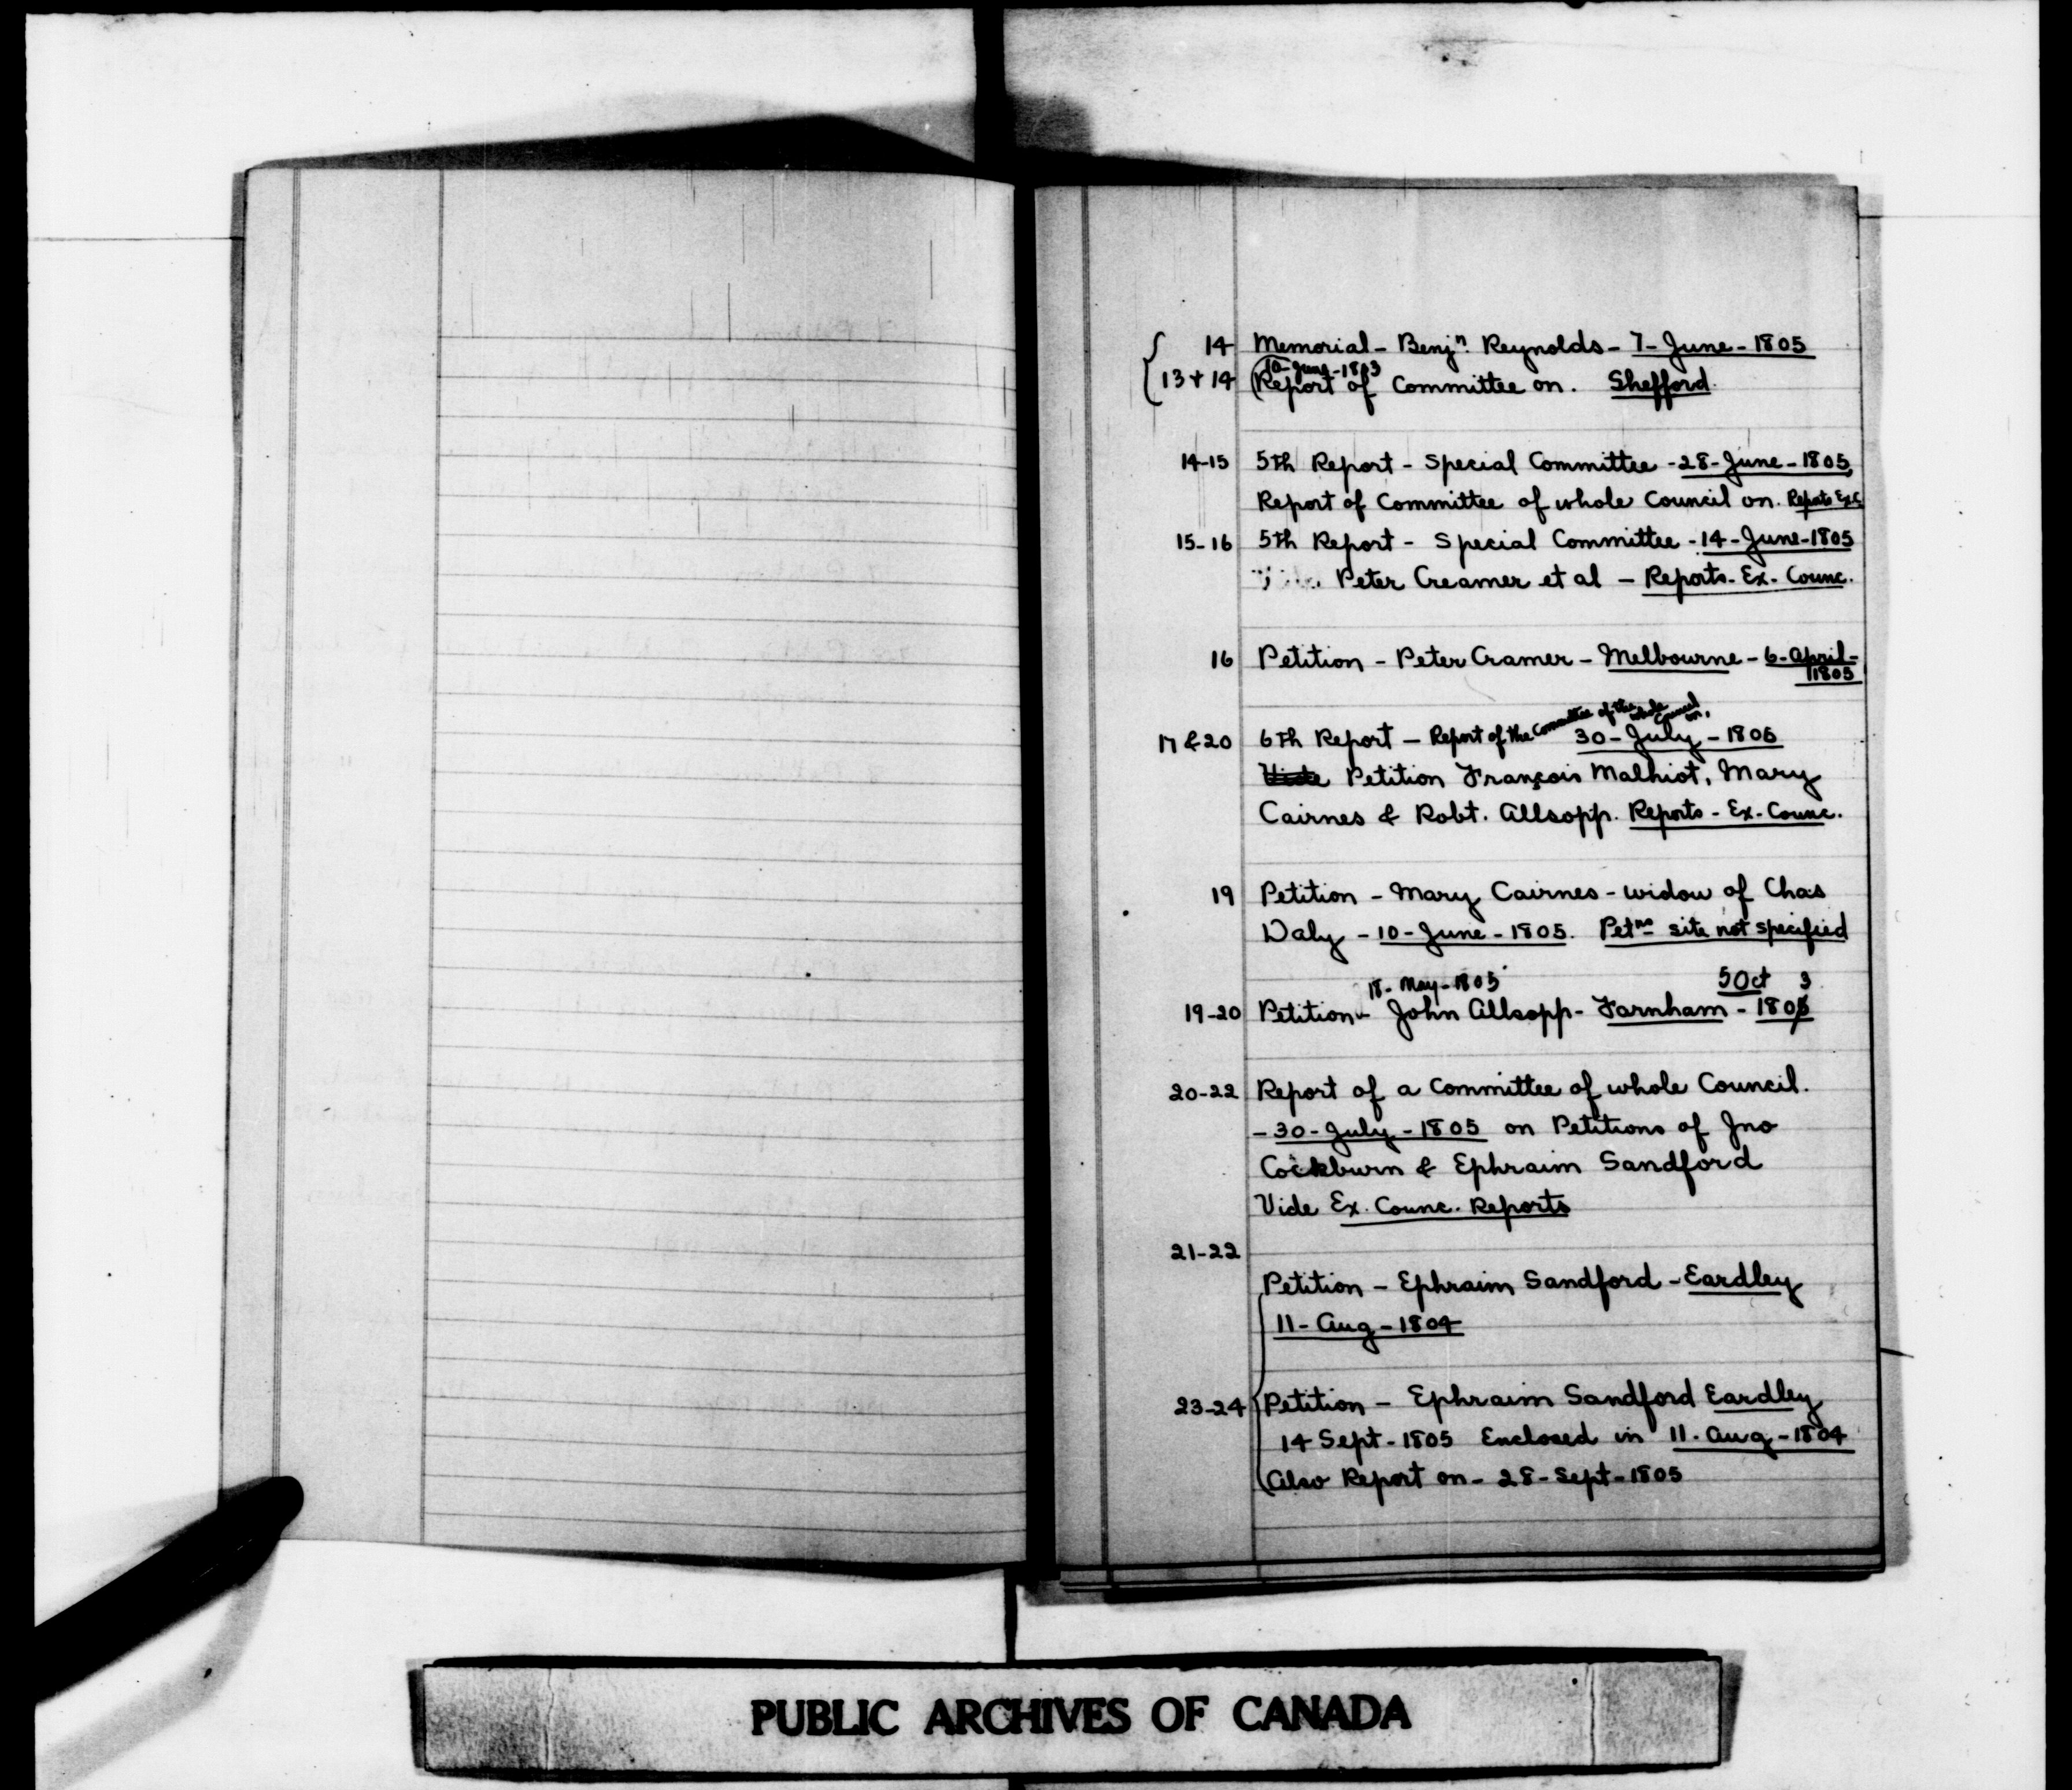 14 Memorial - Benjn. Reynolds - 7 - June - 1805
10 - June - 1803
13 + 14 (Report of Committee on. Shefford.
14-15 5th Report - Special Committee - 28 - June - 1805,
Report of Committee of whole Council on. Reports Ex.C
15-16 5th Report - Special Committee - 14 - June - 1805
Peter Creamer et al - Reports - Ex. Counc.
16 Petition - Peter Cramer - Melbourne - 6 - April -
1805
17 & 20 6th Report - Report of the Committee of the whole Council on. 30 - July - 1805
Vide Petition François Malhiot, Mary
Cairnes & Robt. Allsopp. Reports - Ex. Counc.
19 Petition - Mary Cairnes - widow of Chas
Daly - 10 - June - 1805. Petns site not specified
18 - May - 1805 5 Oct 3
19-20 Petition - John Allsopp - Farnham - 1805
20-22 Report of a Committee of whole Council.
- 30 - July - 1805 on Petitions of Jno
Cockburn & Ephraim Sandford
Vide Ex. Counc. Reports
21-22
Petition - Ephraim Sandford - Eardley
11 - Aug - 1804
23-24 Petition - Ephraim Sandford Eardley
14 Sept - 1805 Enclosed in 11 - Aug - 1804
(Also Report on - 28 - Sept - 1805
PUBLIC ARCHIVES OF CANADA